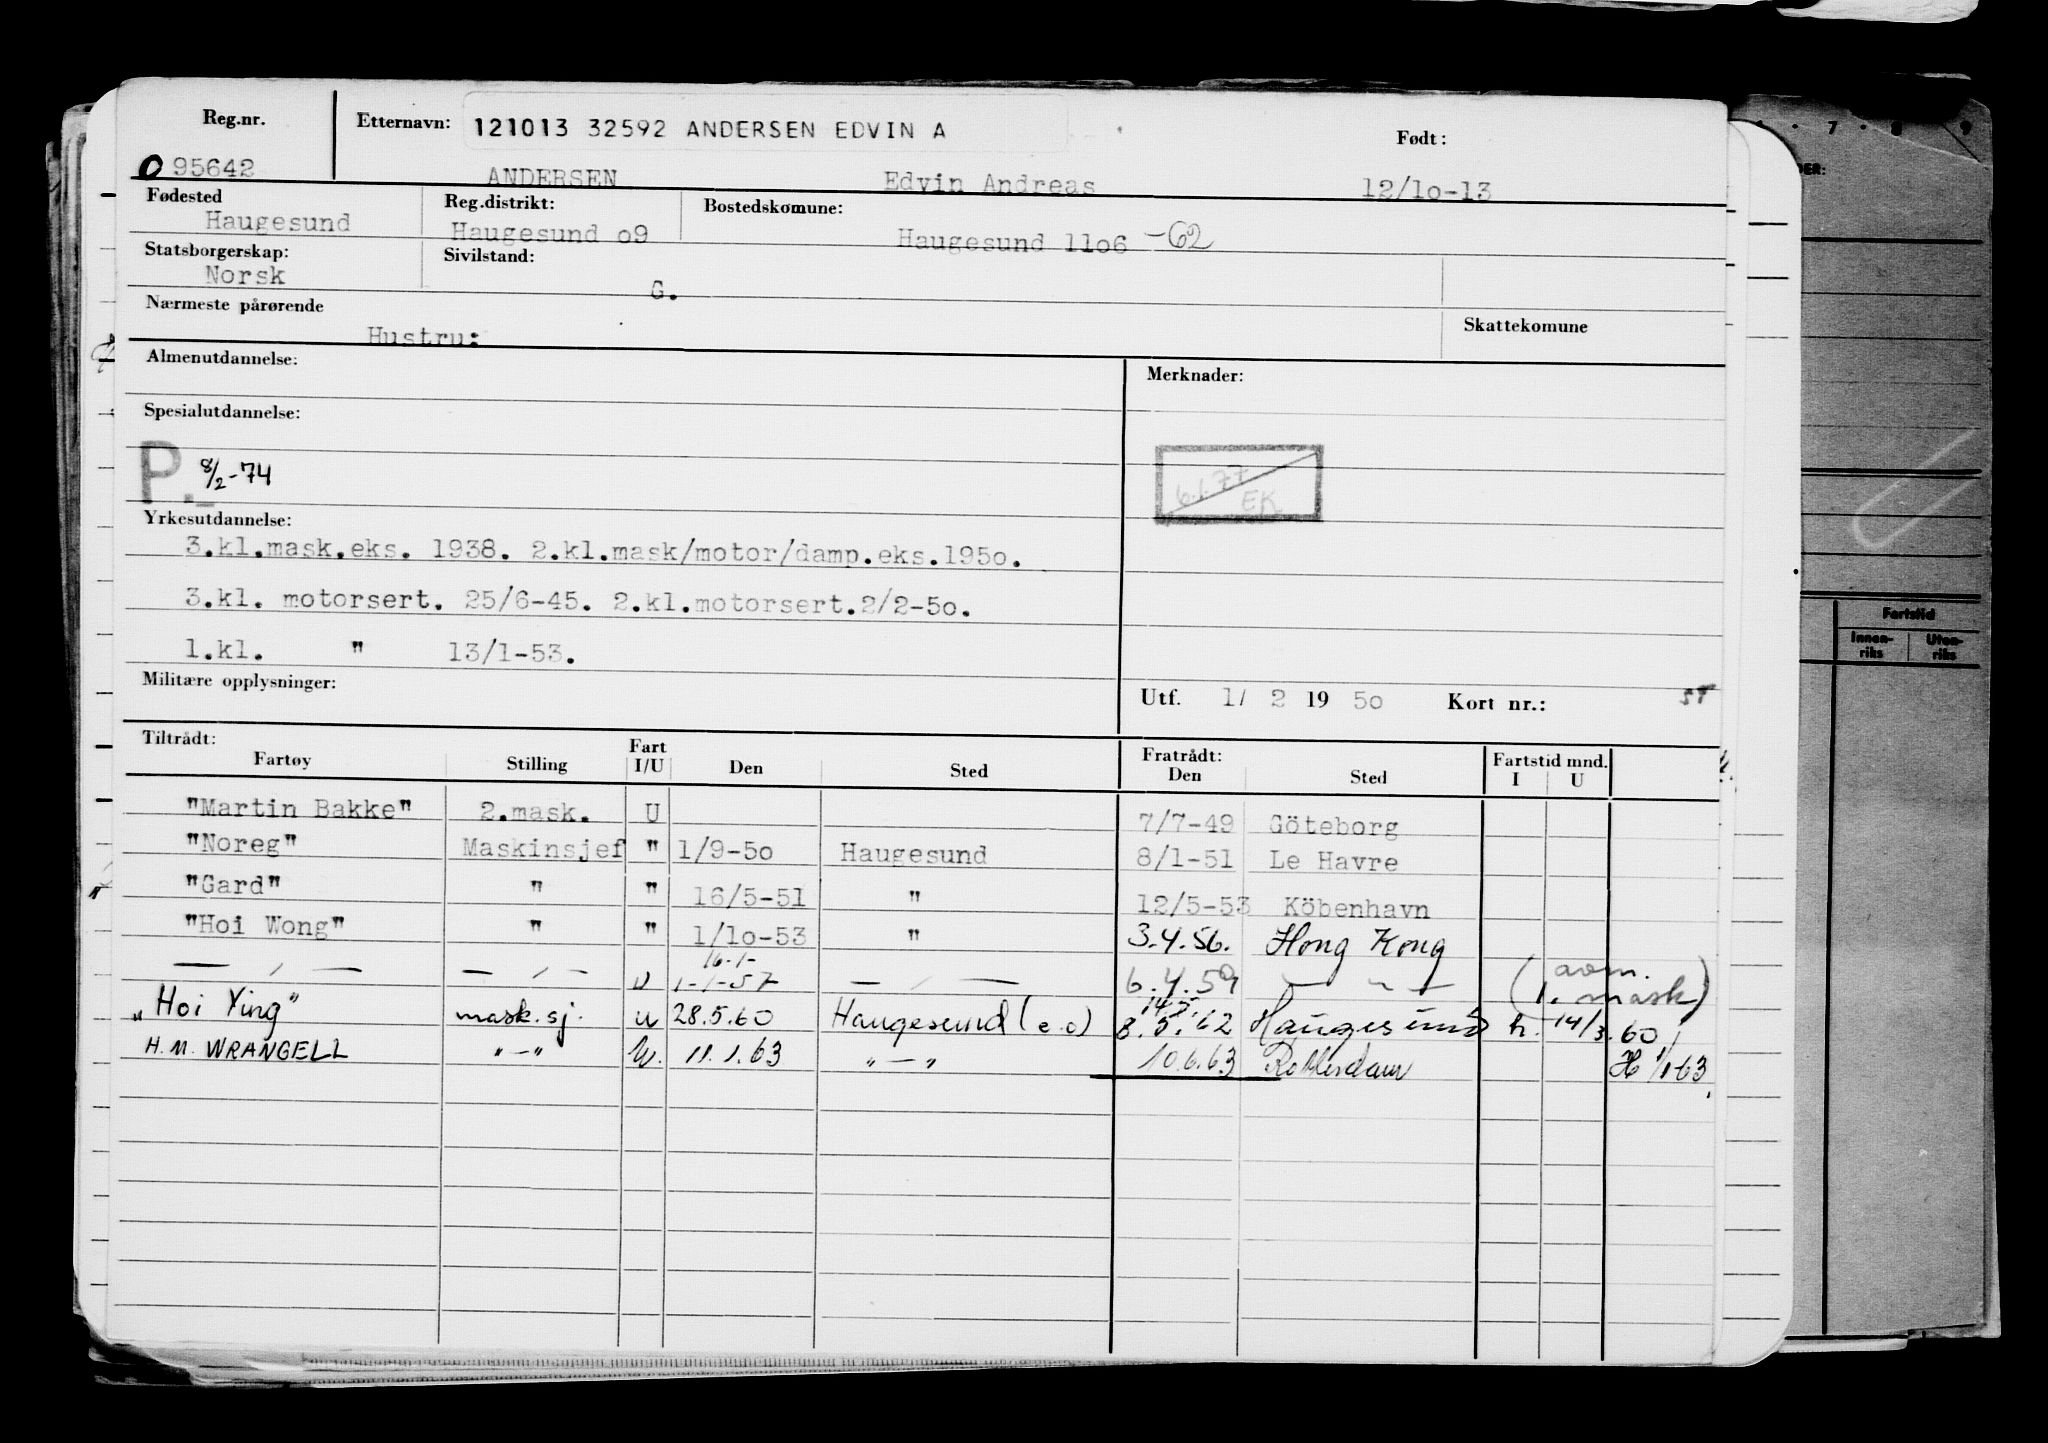 Reg.nr. Etternavn: 121013 32592 ANDERSEN EDVIN A Født:
095642 ANDERSEN Edvin Andreas 12/1o-13
Fødested Reg.distrikt: Bostedskomune:
Haugesund Haugesund o9 Haugesund 11o6 -62
Statsborgerskap: Sivilstand:
Norsk G.
Nærmeste pårørende Skattekomune
Hustru:
Almenutdannelse: Merknader:
Spesialutdannelse:
P. 8/2-74 6.1.77
EK
Yrkesutdannelse:
3.kl.mask.eks. 1938. 2.kl.mask/motor/damp.eks.195o.
3.kl. motorsert. 25/6-45. 2.kl.motorsert.2/2-5o.
1.kl. " 13/1-53.
Militære opplysninger: Utf. 1/ 2 19 5o Kort nr.:
Tiltrådt: Fart Fratrådt: Fartstid mnd.
Fartøy Stilling I/U Den Sted Den Sted I U
"Martin Bakke" 2.mask. U 7/7-49 Göteborg
"Noreg" Maskinsjef " 1/9-5o Haugesund 8/1-51 Le Havre
"Gard" " " 16/5-51 " 12/5-53 Köbenhavn
"Hoi Wong" " " 1/1o-53 " 3.4.56. Hong Kong
— , — — , — U 16-1- 1-1-57 — , — 6.4.59 — " — (avm. 1. mask)
"Hoi Ying" mask.sj. U 28.5.60 Haugesund (e.o) 8.5.62 Haugesund h. 14/3.60
H.M. WRANGELL "—" U. 11.1.63 "—" 10.6.63 Rotterdam H 1/1-63.
7 8 9
DER:
Fartstid
Innen-
riks Uten-
riks